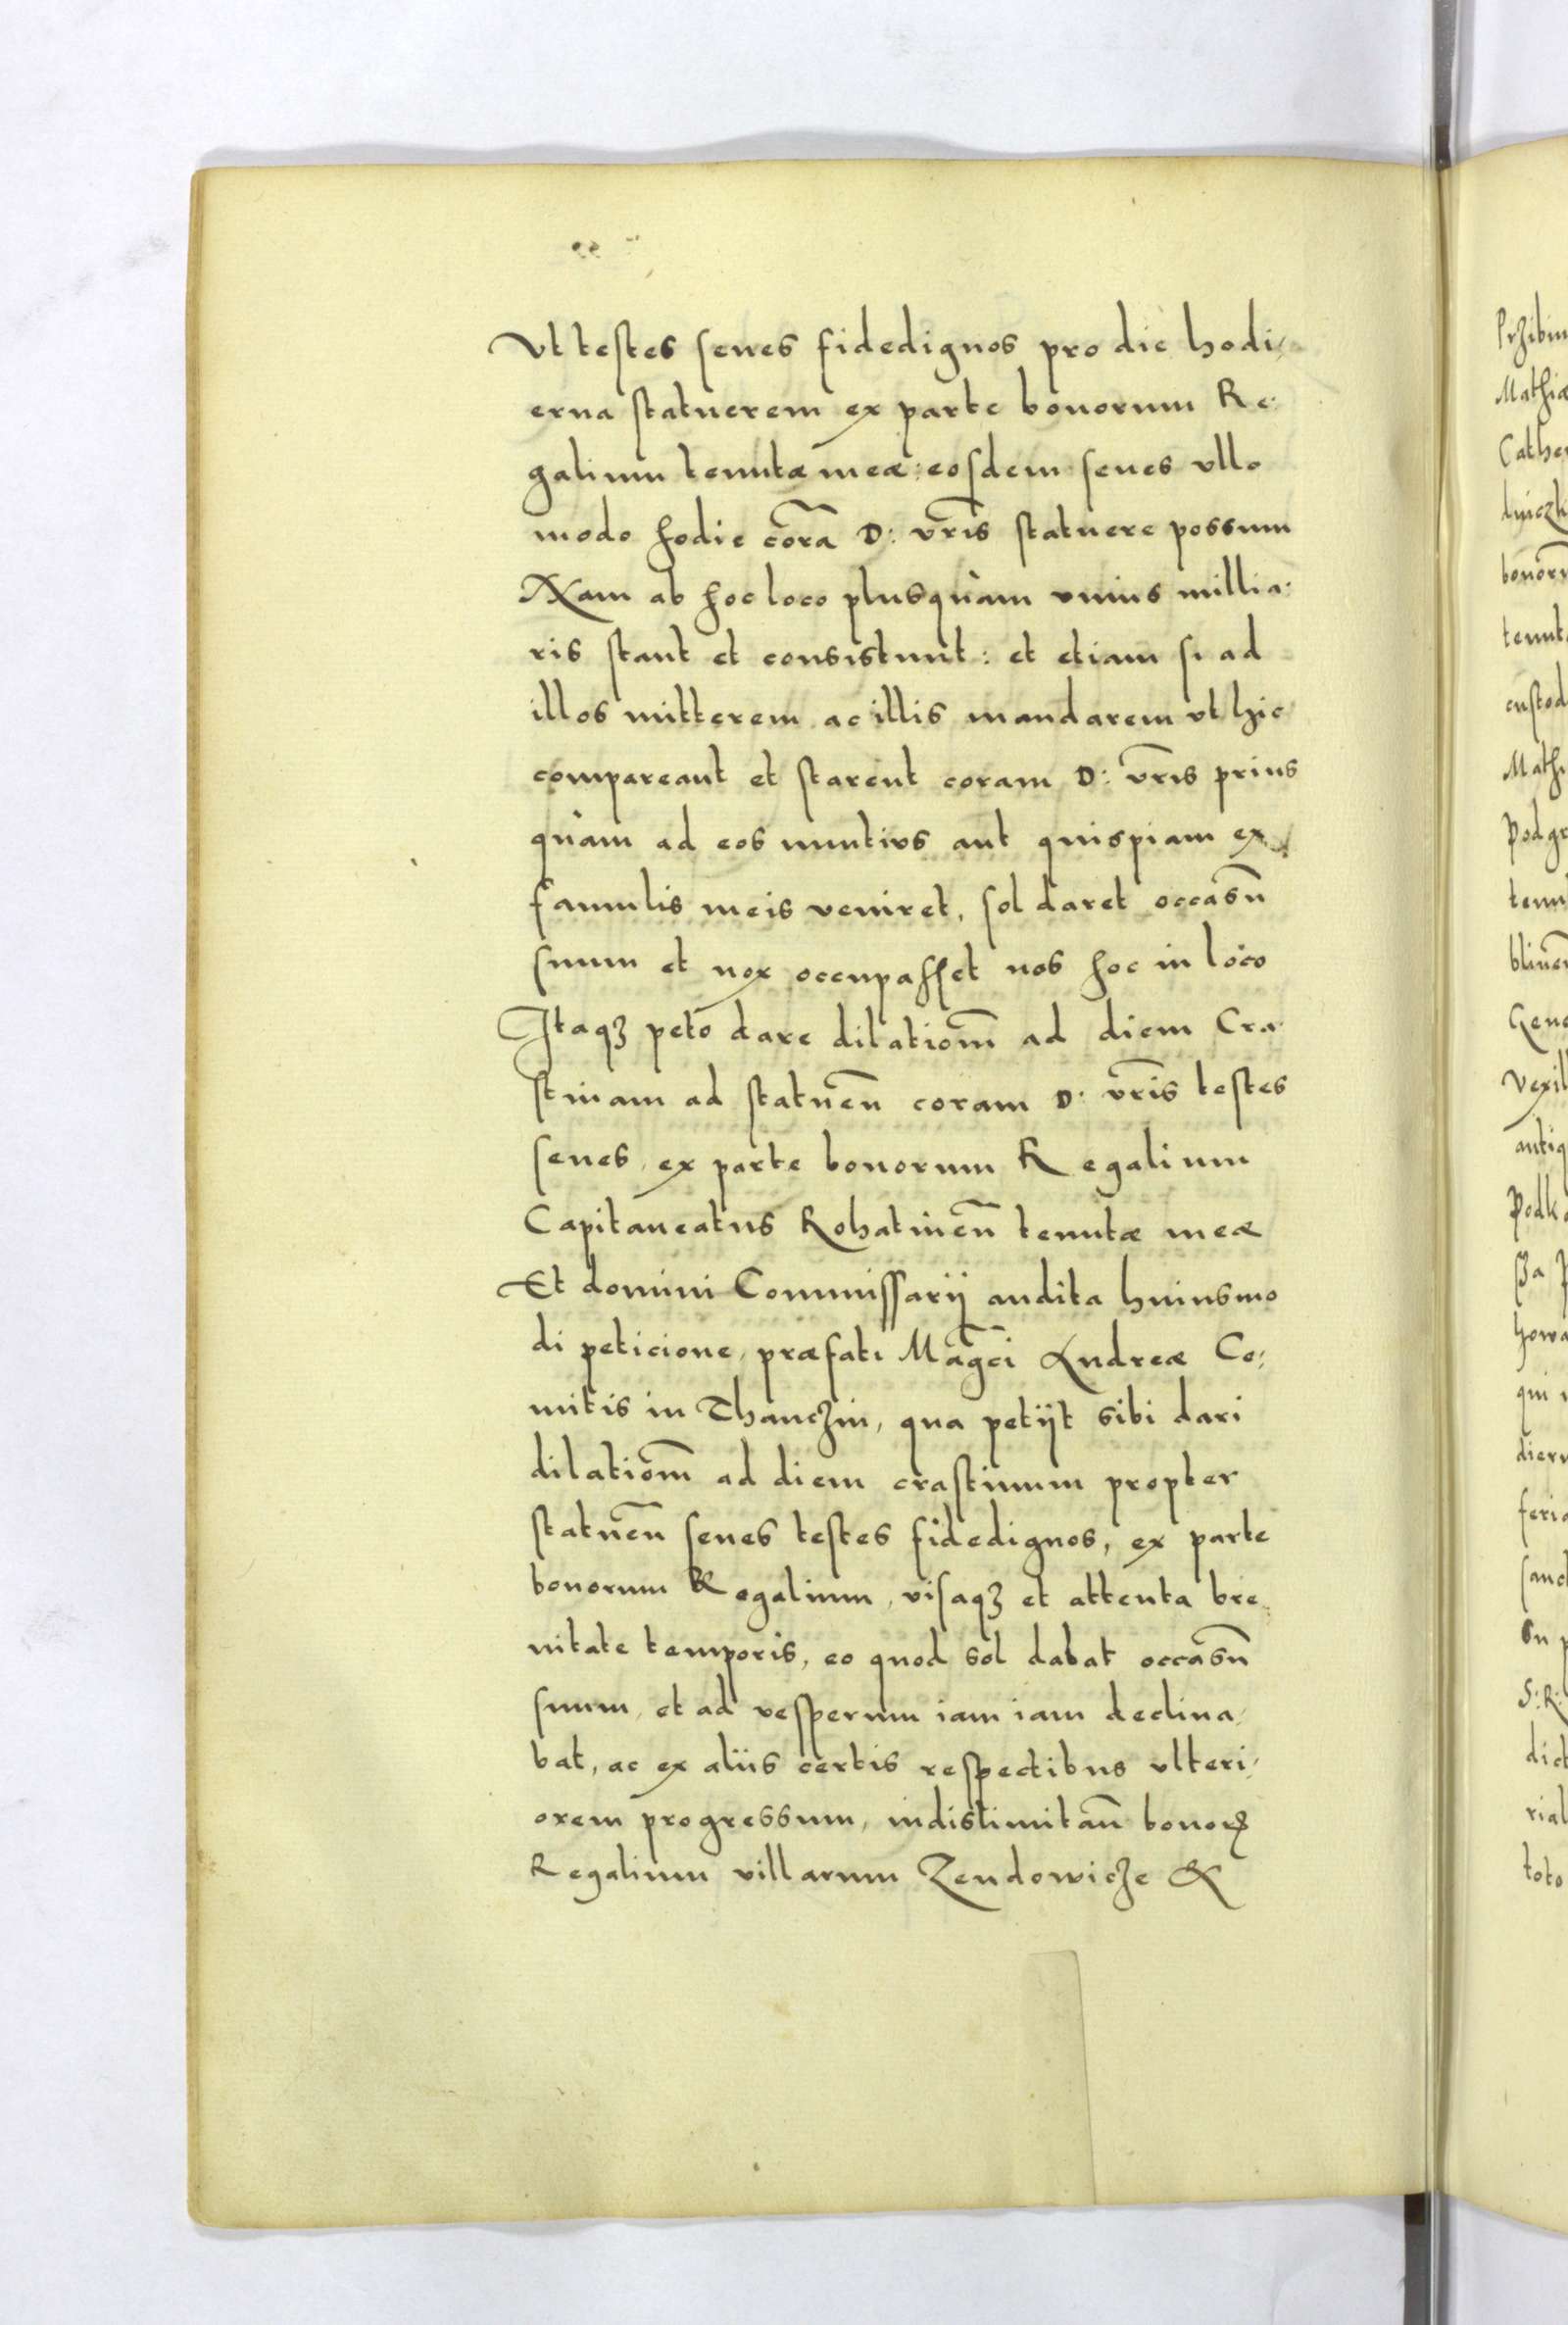 Vt testes senes fidedignos pro die hodi-
erna statuerem ex parte bonorum Re:
galium tenutæ meæ: eosdem senes vllo
modo hodie corã D: vr̃is statuere possum
Nam ab hoc loco plusquàm vnius millia:
ris stant et consistunt: et etiam si ad
illos mitterem ac illis mandarem vt hic
compareant et starent coram D: vr̃is prius
quàm ad eos nuntivs aut quispiam ex
famulis meis veniret, sol daret occasũ
suum et nox occupasset nos hoc in loco
Itaqꝫ peto dare dilatiom̃ ad diem Cra-
stinam ad statueñ coram D: vr̃is testes
senes, ex parte bonorum Regalium
Capitaneatus Rohatineñ tenutæ meæ
Et domini Commissarij audita huiusmo
di peticione, præfati Mag̃ci Andreæ Co:
mitis in Thanczin, qua petijt sibi dari
dilatiom̃ ad diem crastinum propter
statueñ senes testes fidedignos, ex parte
bonorum Regalium, visaqꝫ et attenta bre:
uitate temporis, eo quod sol dabat occasũ
suum, et ad vesperum iam iam declina-
bat, ac ex alijs certis respectibus vlteri-
orem progressum, in distimitañ bonoꝝ
Regalium villarum Zendowicze &
Mathi
tenut
custod
Podgr
antiq
howa
qui
diern
feria
S: R:
dict
rial
toto